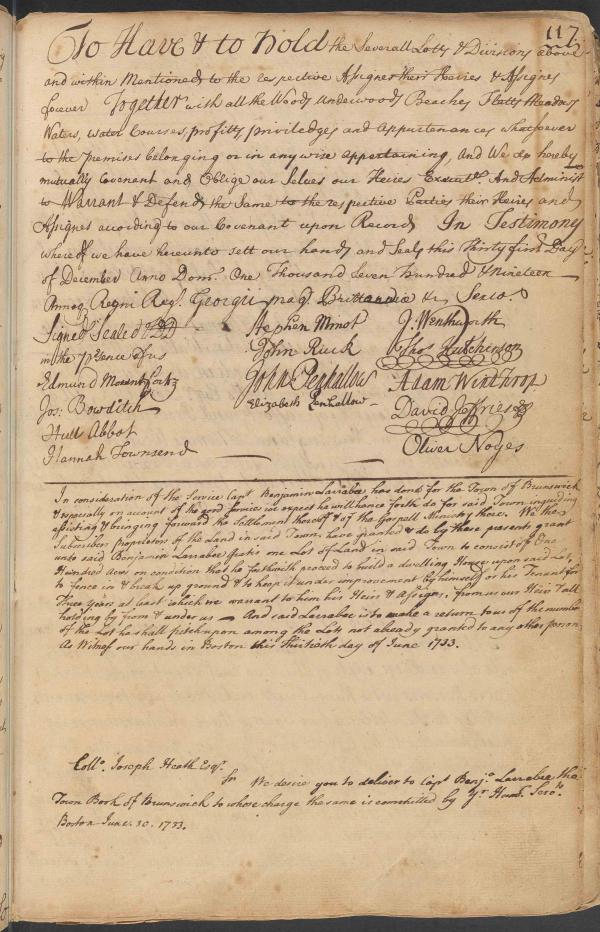 117
To Have & to hold the Severall Lotts & Divisions above
and within Mentioned to the respective Assignes their Heires & Assignes
forever Together with all the Woods Underwoods Beaches Flatts Meadows
Waters, water Courses, profitts priviledges and Appurtenances whatsoever
to the premises belonging or in any wise appertaining, And We do hereby
mutually Covenant and Oblige our Selves our Heires Execut.rs And Administ
to Warrant & Defend the Same to the respective Parties their Heires and
Assignes according to our Covenant upon Record In Testimony
whereof we have hereunto sett our hands and Seals this Thirty first Day
of December Anno Dom. One Thousand Seven hundred & Nineteen
Annoq Regni Reg.s Georgii mag Brittandie &c Sexto.
Signed Sealed & DD
in the presence of us
Edmund Mountfort
Jos: Bowditch
Hull Abbot
Hannah Townsend
Stephen Minot
John Ruck
John Penhallow
Elizabeth Penhallow
J Wenthworth
Thos Hutchinson
Adam Winthrop
David Jeffries
Oliver Noyes
In consideration of the Service Capt Benjamin Larrabee has done for the Town of Brunswick
& especially on account of the good services we expect he will hence forth do for said Town in guiding
assisting & bringing forward the Settlement thereof & of the Gospell Ministry there. We the
Subscribers proprietors of the Land in said Town have granted & do by these presents grant
unto said Benjamin Larrabee one Lot of Land in said Town to consist of One
Hundred Acres on condition that he forthwith proceed to build a dwelling House upon said Lot,
to fence in & break up ground & to keep it under improvement by himself or his Tenant for
Three years at least which we warrant to him his Heirs & Assigns, from us our Heirs & all
holding by from & under us — And said Larrabee is to make a return to us of the number
of the Lot he shall pitch upon among the Lots not already granted to any other person
As Witness our hands in Boston this thirtieth day of June 1733.
Collo. Joseph Heath Esqr.
Sr We desire you to deliver to Capt Benj.a Larrabee the
Town Book of Brunswick to whose charge the same is committed by yr Humb. Servts.
Boston June. 30. 1733.